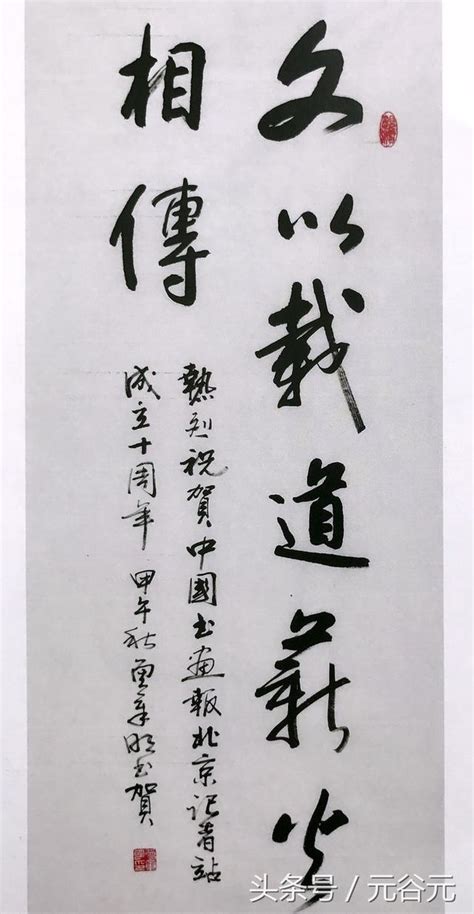 文以載道薪火
相傳
熱烈祝賀中國书畫報北京记者站
成立十周年 甲午秋 明书賀
头条号 / 元谷元